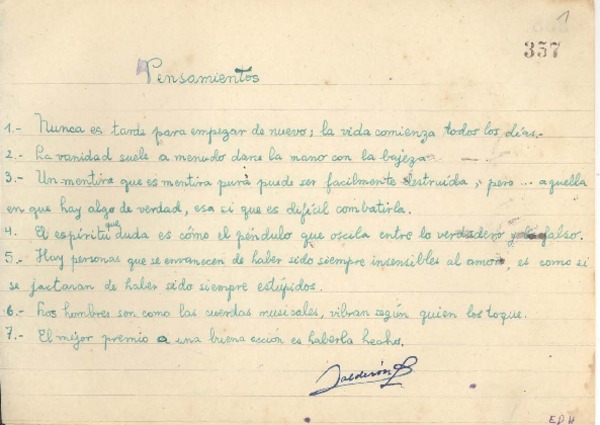 1
357
Pensamientos
1.- Nunca es tarde para empezar de nuevo; la vida comienza todos los días.-
2.- La vanidad suele a menudo darse la mano con la bajeza
3.- Un mentira que es mentira pura puede ser facilmente destruida, pero... aquella
en que hay algo de verdad, esa si que es difícil combatirla.
4.- El espíritu que duda es cómo el péndulo que oscila entre lo verdadero y lo falso.
5.- Hay personas que se envanecen de haber sido siempre insensibles al amor, es como si
se jactaran de haber sido siempre estúpidos.
6.- Los hombres son como las cuerdas musicales, vibran según quien los toque.
7.- El mejor premio a una buena acción es haberla hecho.
Calderón
EDH